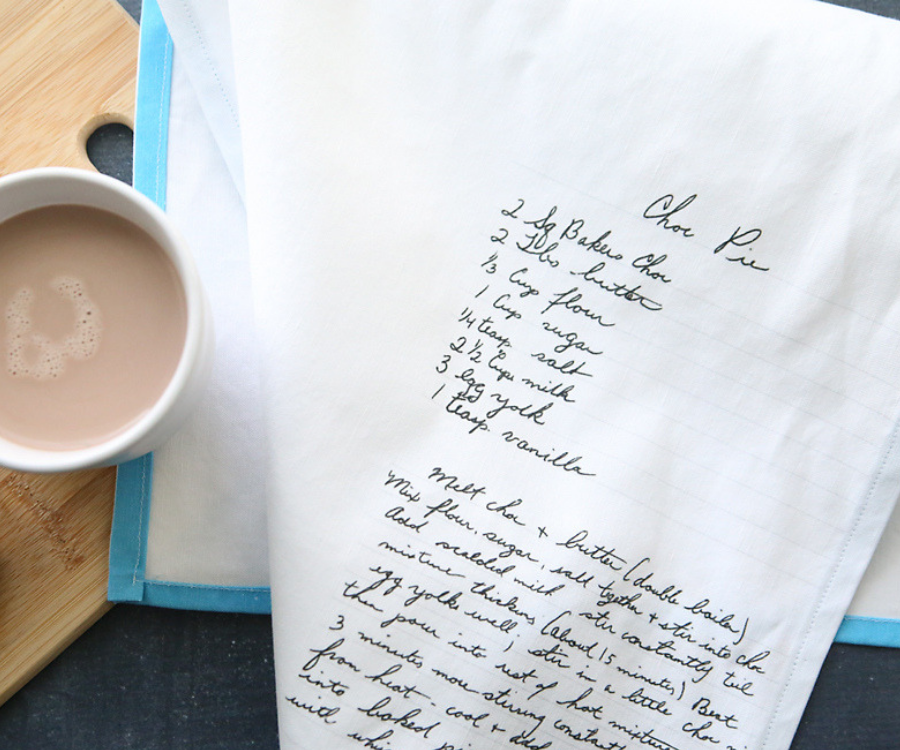 Choc Pie
2 Sq Bakers Choc
2 Tbs butter
⅓ Cup flour
1 Cup sugar
¼ teasp salt
2 ½ Cup milk
3 egg yolk
1 teasp vanilla
Melt choc + butter (double boiler)
Mix flour, sugar, salt together + stir into choc
Add scalded milk stir constantly til
mixture thickens (about 15 minutes) Beat
egg yolks well; stir in a little choc
then pour into rest of hot mixture
+ 3 minutes more stirring constant
from heat - cool + add
into baked
with whi